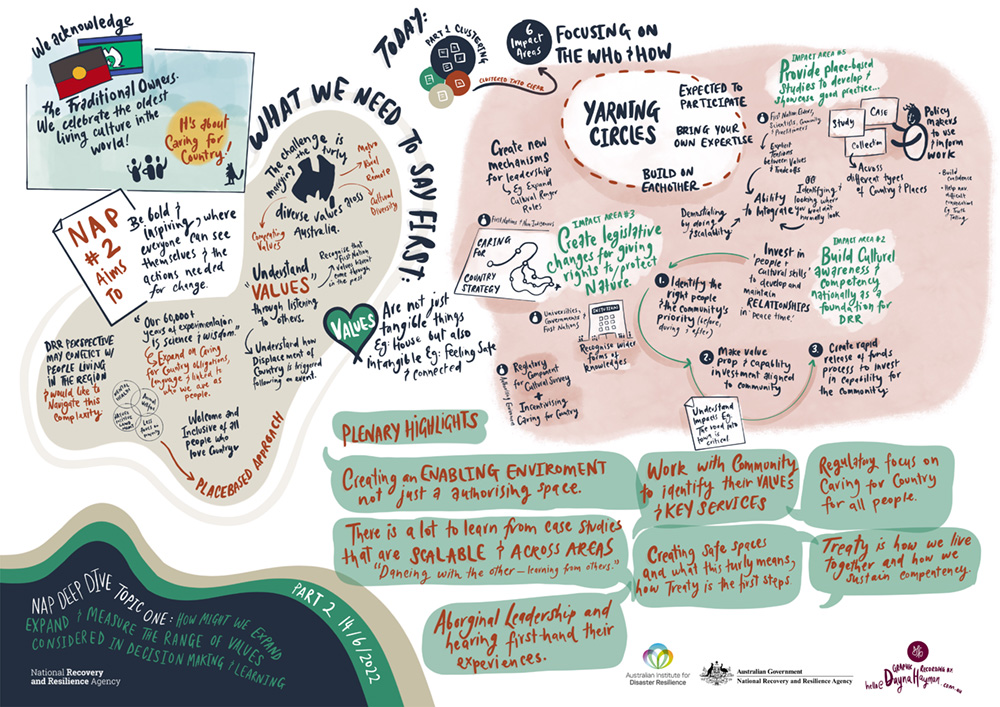 We acknowledge
the Traditional Owners.
We celebrate the oldest
living culture in the
world!
It's about
Caring for
Country!
NAP
#2
Aims
To
Be bold &
inspiring, where
everyone can see
themselves & the
actions needed
for change.
WHAT WE NEED TO SAY FIRST:
The challenge is
in the turly
diverse values across
Australia.
Metro
Rural
Remote
Cultural
Diversity
Competing
Values
"Understand
VALUES"
through listening
to others.
Recognise that
First Nation
Values haven't
come through
in the past
Understand how
Displacement of
Country is triggered
following an event.
"Our 60,000
years of experimentation
is science & wisdom."
Expand on Caring
for Country obligations,
language & linked to
who we are as
people.
DRR PERSPECTIVE
MAY CONFLICT W/
PEOPLE LIVING
IN THE REGION
& would like to
Navigate this
complexity
Welcome and
Inclusive of all
people who
love Country
PLACEBASED APPROACH
VALUES
Are not just
tangible things
Eg: House but also
Intangible Eg: Feeling Safe
& connected
TODAY:
PART 1 CLUSTERING
CLUSTERED INTO CLEAR
6
Impact
Areas
FOCUSING ON
THE WHO & HOW
YARNING
CIRCLES
EXPECTED TO
PARTICIPATE
BRING YOUR
OWN EXPERTISE
BUILD ON
EACHOTHER
Create new
mechanisms
for leadership
Eg Expand
Cultural Ranger
Roles
First Nations & Non Indigenous
CARING
FOR
COUNTRY
STRATEGY
IMPACT AREA #3
Create legislative
changes for giving
rights to/protect
Nature.
Universities,
Governments &
First Nations
Recognise wider
forms of
knowledges
Regulatory
Component
for Cultural Survey
+
Incentivising
Caring for Country
IMPACT AREA #5
Provide place-based
Studies to develop &
showcase good practice...
First Nation Elders,
Scientists, Community
& Practitioners
Explicit
Tensions
between Values
& Tradeoffs
Study
CASE
Collection
Policy
makers
to use
& inform
work
Across
different types
of Country & Places
Build Confidence
Identifying &
looking where
you would not
normally look
Ability
to Integrate
Demonstrating
by doing
& Scalability
IMPACT AREA #2
Build Cultural
awareness &
competency
nationally as a
foundation for
DRR
Invest in
people &
cultural skills
to develop and
maintain
RELATIONSHIPS
in 'peace time'
1. Identify the
right people
& the community's
priority (before,
during & after)
2. Make value
prop & capability
investment aligned
to community
3. Create rapid
release of funds
process to invest
in capability for
the community
Understand
Impacts Eg.
The road into
town is
critical
PLENARY HIGHLIGHTS
Creating an ENABLING ENVIROMENT
not just a authorising space.
Work with Community
to identify their VALUES
& KEY SERVICES
Regulatory focus on
Caring for Country
for all people.
There is a lot to learn from case studies
that are SCALABLE & ACROSS AREAS
"Dancing with the other – learning from others."
Creating safe spaces
and what this turly means,
how Treaty is the first steps.
Treaty is how we live
Together and how we
sustain competency.
Aboriginal Leadership and
hearing first-hand their
experiences.
NAP DEEP DIVE TOPIC ONE: HOW MIGHT WE EXPAND
EXPAND & MEASURE THE RANGE OF VALUES
CONSIDERED IN DECISION MAKING & LEARNING
PART 2 14/6/2022
National Recovery
and Resilience Agency
Australian Institute for
Disaster Resilience
Australian Government
National Recovery and Resilience Agency
GRAPHIC RECORDING BY:
hello@DaynaHayman.com.au